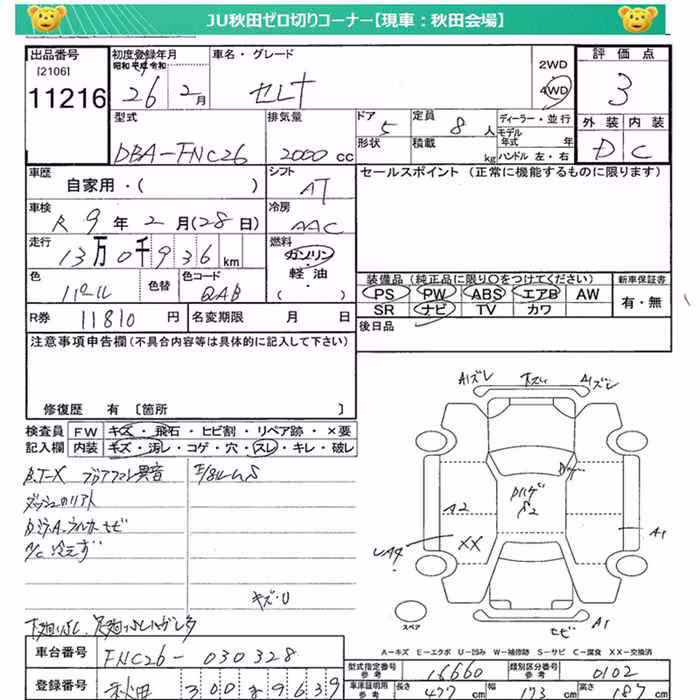 JU秋田ゼロ切りコーナー【現車：秋田会場】
出品番号 [2106] 11216
初度登録年月 昭和 平成 令和 26年 2月
車名・グレード セレナ
2WD 4WD
評価点 3
外装 内装 D C
型式 DBA-FNC26
排気量 2000 cc
ドア 5 形状
定員 8人 積載 kg
ディーラー・並行
モデル年式 年
ハンドル 左・右
車歴 自家用・( )
シフト AT
セールスポイント (正常に機能するものに限ります)
車検 R 9年 2月 (28日)
冷房 AAC
走行 13万0千936 km
燃料 ガソリン 軽油 ( )
色 パール 色替 色コード QAB
装備品 (純正品に限り○をつけてください) 新車保証書
PS PW ABS エアB AW 有・無
SR ナビ TV カワ
R券 11810 円 名変期限 月 日
後日品
注意事項申告欄 (不具合内容等は具体的に記入して下さい)
修復歴 有 [箇所 ]
検査員 FW キズ・飛石・ヒビ割・リペア跡・×要
記入欄 内装 キズ・汚レ・コゲ・穴・スレ・キレ・破レ
異音
A/C 冷えず
キズ・U
A1ズレ A1ズレ
A2 A1
XX
A1
スペア
A－キズ E－エクボ U－凹み W－補修跡 S－サビ C－腐食 XX－交換済
車台番号 FNC26-030328
型式指定番号 参考 16660 類別区分番号 参考 0102
登録番号 秋田 300 9639
車検証明用 参考 長さ 477 cm 幅 173 cm 高さ 187 cm